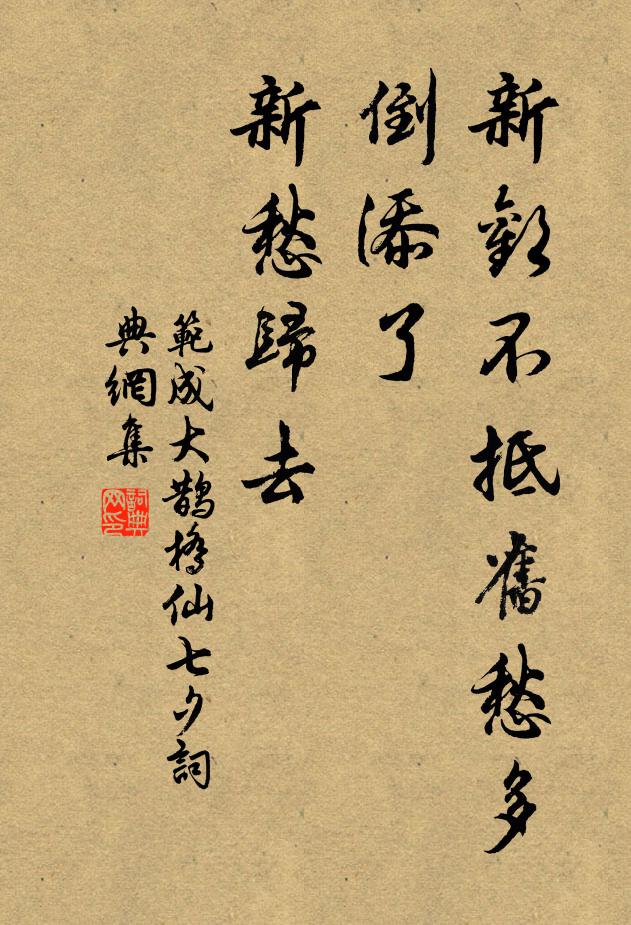 新歡不抵舊愁多
倒添了
新愁歸去
範成大鵲橋仙七夕詞
典網集
詞典网印